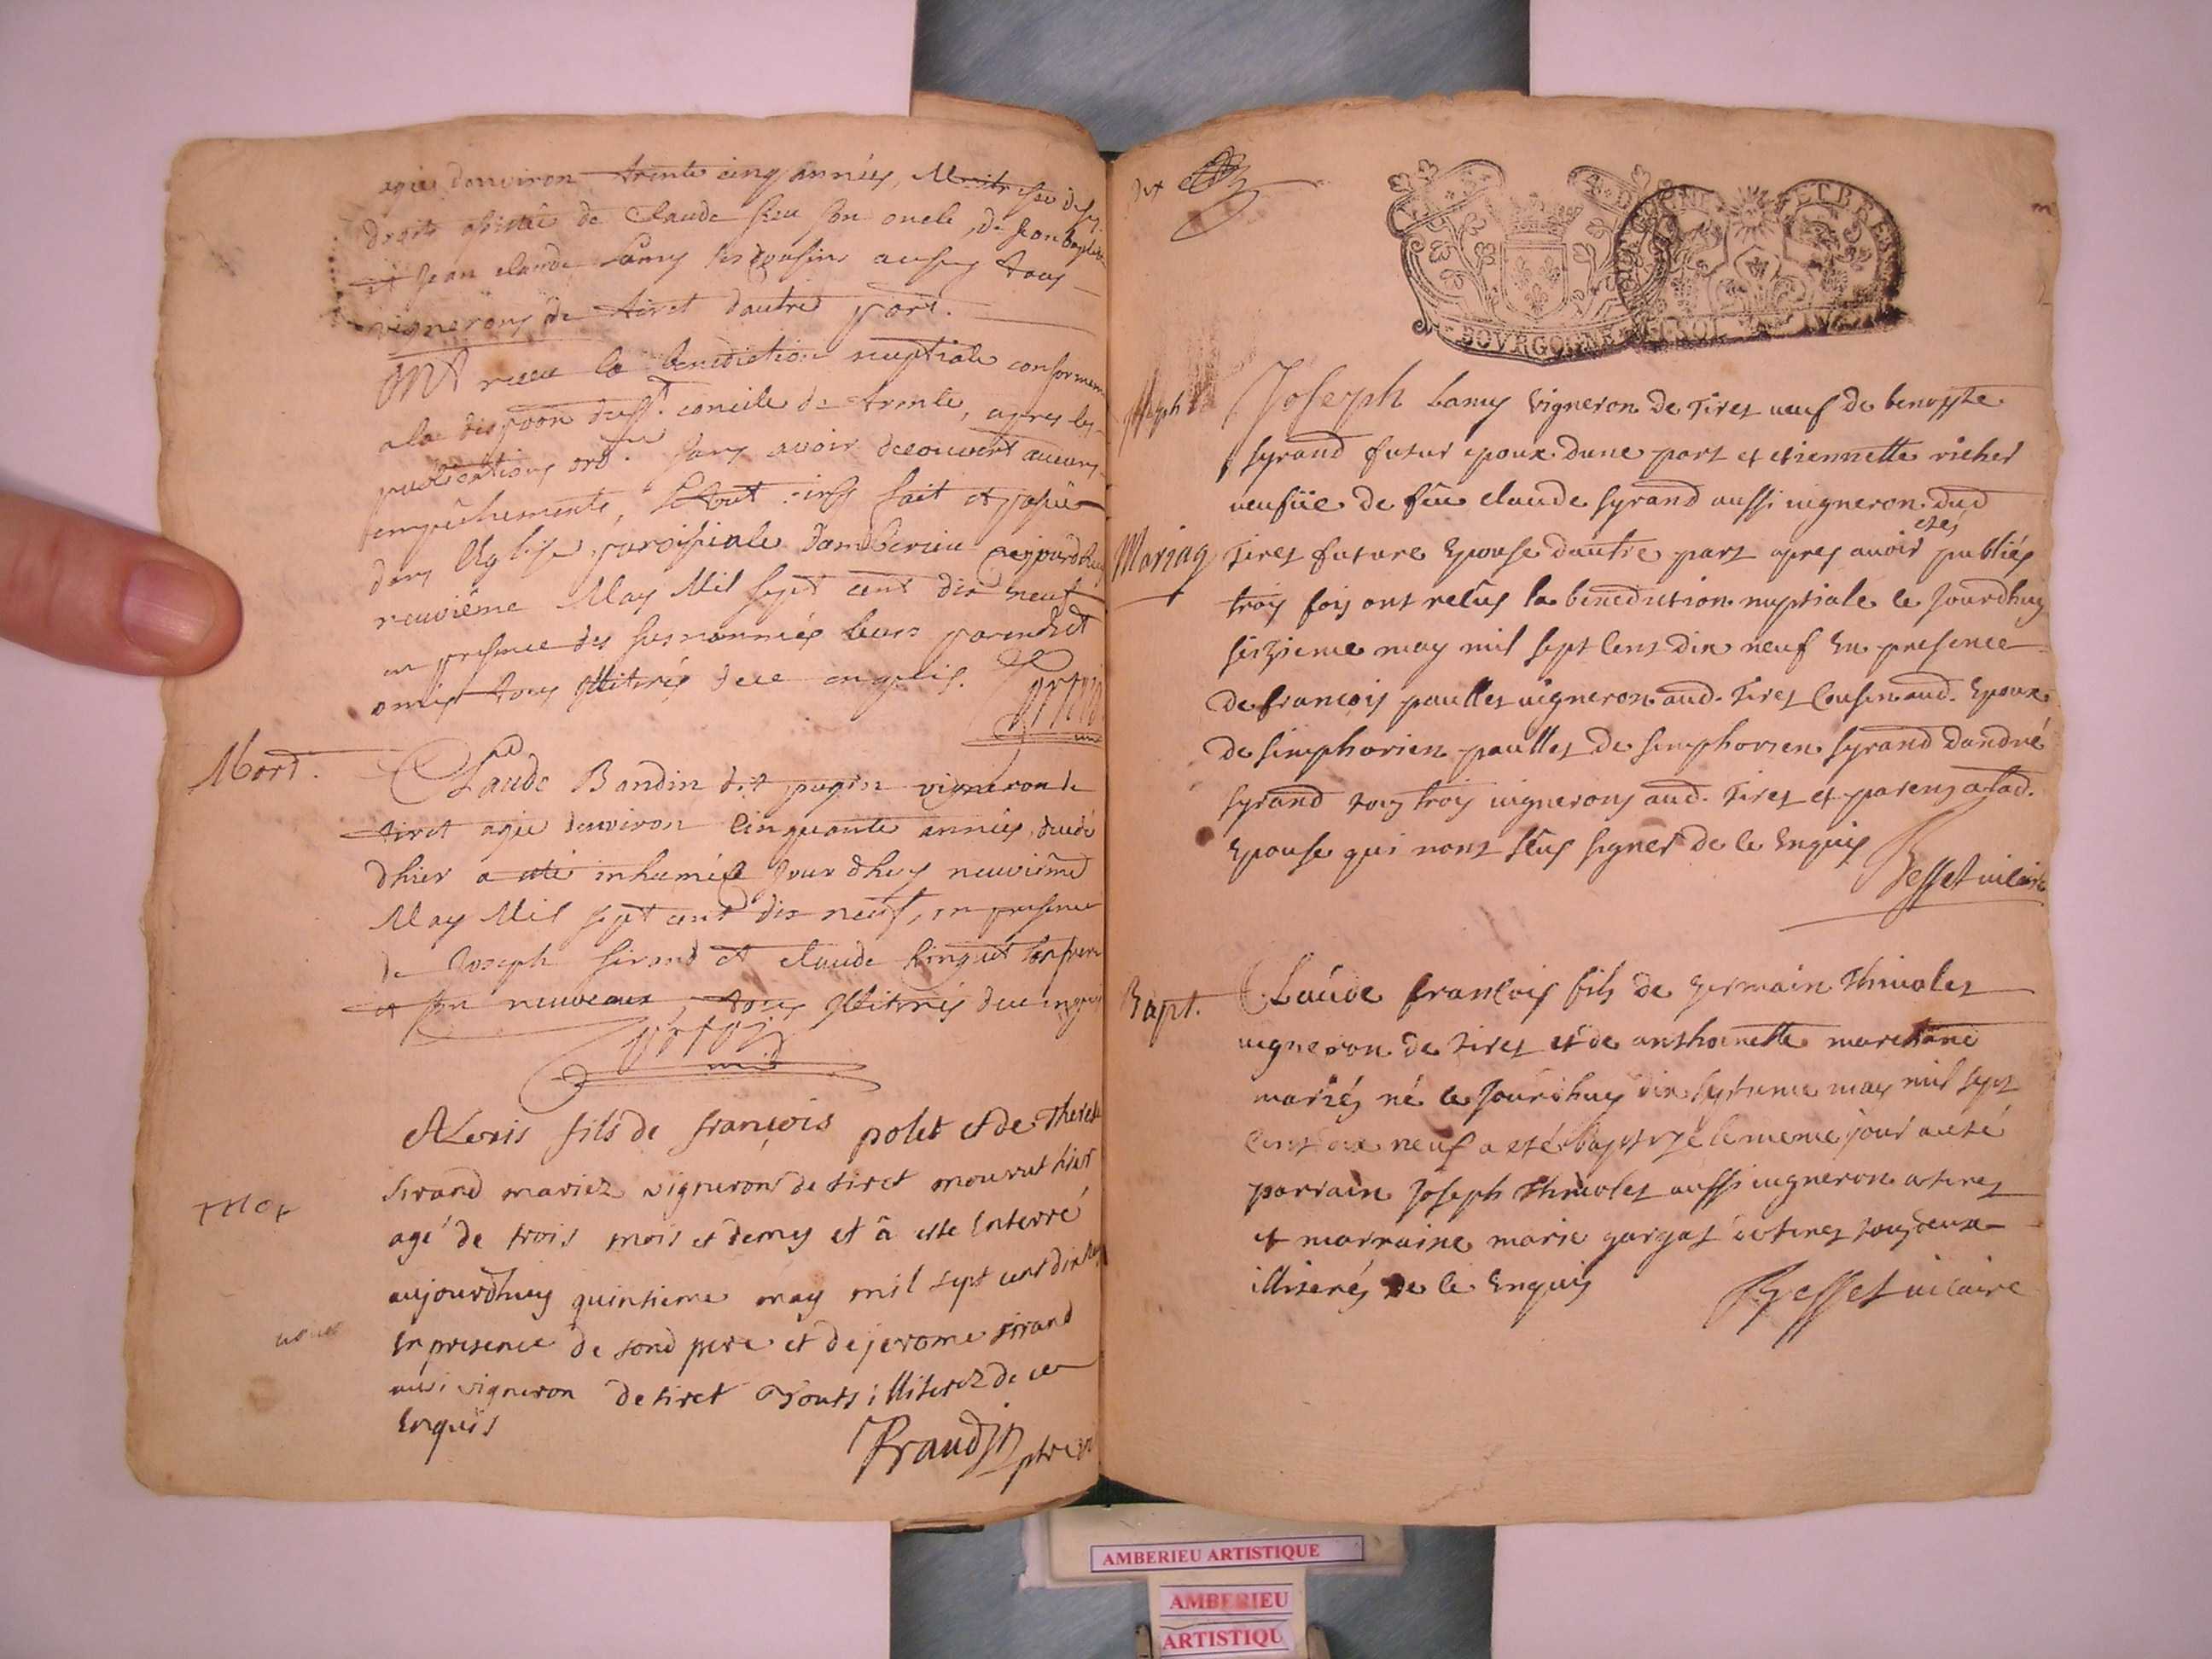 agée denviron trente cinq années, Maitresse de ses
droits assistée de Claude son oncle, de Jean baptiste
et Jean claude Lamy ses cousins aussy tous
vignerons de tiret dautre part.
ONT receu la benediction nuptiale conformem
a la dispoon dusst. concile de trente, apres les
publications ord. sans avoir decouvert aucuns
empéchements, le tout ainsy fait et passé
dans léglise paroissiale damberieu aujourdhuy
neuviême May Mil sept cent dix neuf
en presence des susnommés leurs parents et
amis tous illiterés de ce enquis.
Mort.
Claude Bondin dit pugin vigneron de
tiret agé denviron cinquante années, decedé
dhier a eté inhumé le Jourdhuy neuviême
May Mil sept cent dix neuf, en presence
de Joseph sirand et claude son frere
et son neuveaux, tous illiterés de ce enquis
ALexis fils de françois polet et de Therese
Sirand mariez vignerons de tiret mourut hier
mor
agé de trois mois et demy et â este Enterré
aujourdhuy quinsieme may mil sept cent dix neuf
En presence de sond pere et de jerome sirand
ausi vigneron de tiret Touts illiterez de ce
Enquis
Joseph Lamy vigneron de Tiret veuf de benoiste
syrand futur epoux dune part et etiennette richer
veufve de feu claude syrand aussi vigneron dud
Mariag
Tiret future Epouse dautre part apres avoir etés publiés
trois fois ont recûs la benediction nuptiale ce jourdhuy
seizieme may mil sept cent dix neuf En presence
de francois paullet vigneron aud. Tiret Cousin aud. Epoux
de simphorien paullet de simphorien syrand dandré
syrand tous trois vignerons aud. Tiret et parens a lad.
Epouse qui nont sçus signer de ce Enquis
Besset vicaire
Bapt.
Claude francois fils de germain Thivolet
vigneron de tiret et de anthoinette marchand
mariés né ce Jourdhuy dix septieme may mil sept
cent dix neuf a eté baptizé le meme jour a eté
parrain Joseph Thivolet aussi vigneron a tiret
et marraine marie gargat de tiret tous deux
illiterés de ce Enquis
Besset vicaire
BOURGOGNE
ET BRES
AMBERIEU ARTISTIQUE
AMBERIEU
ARTISTIQU